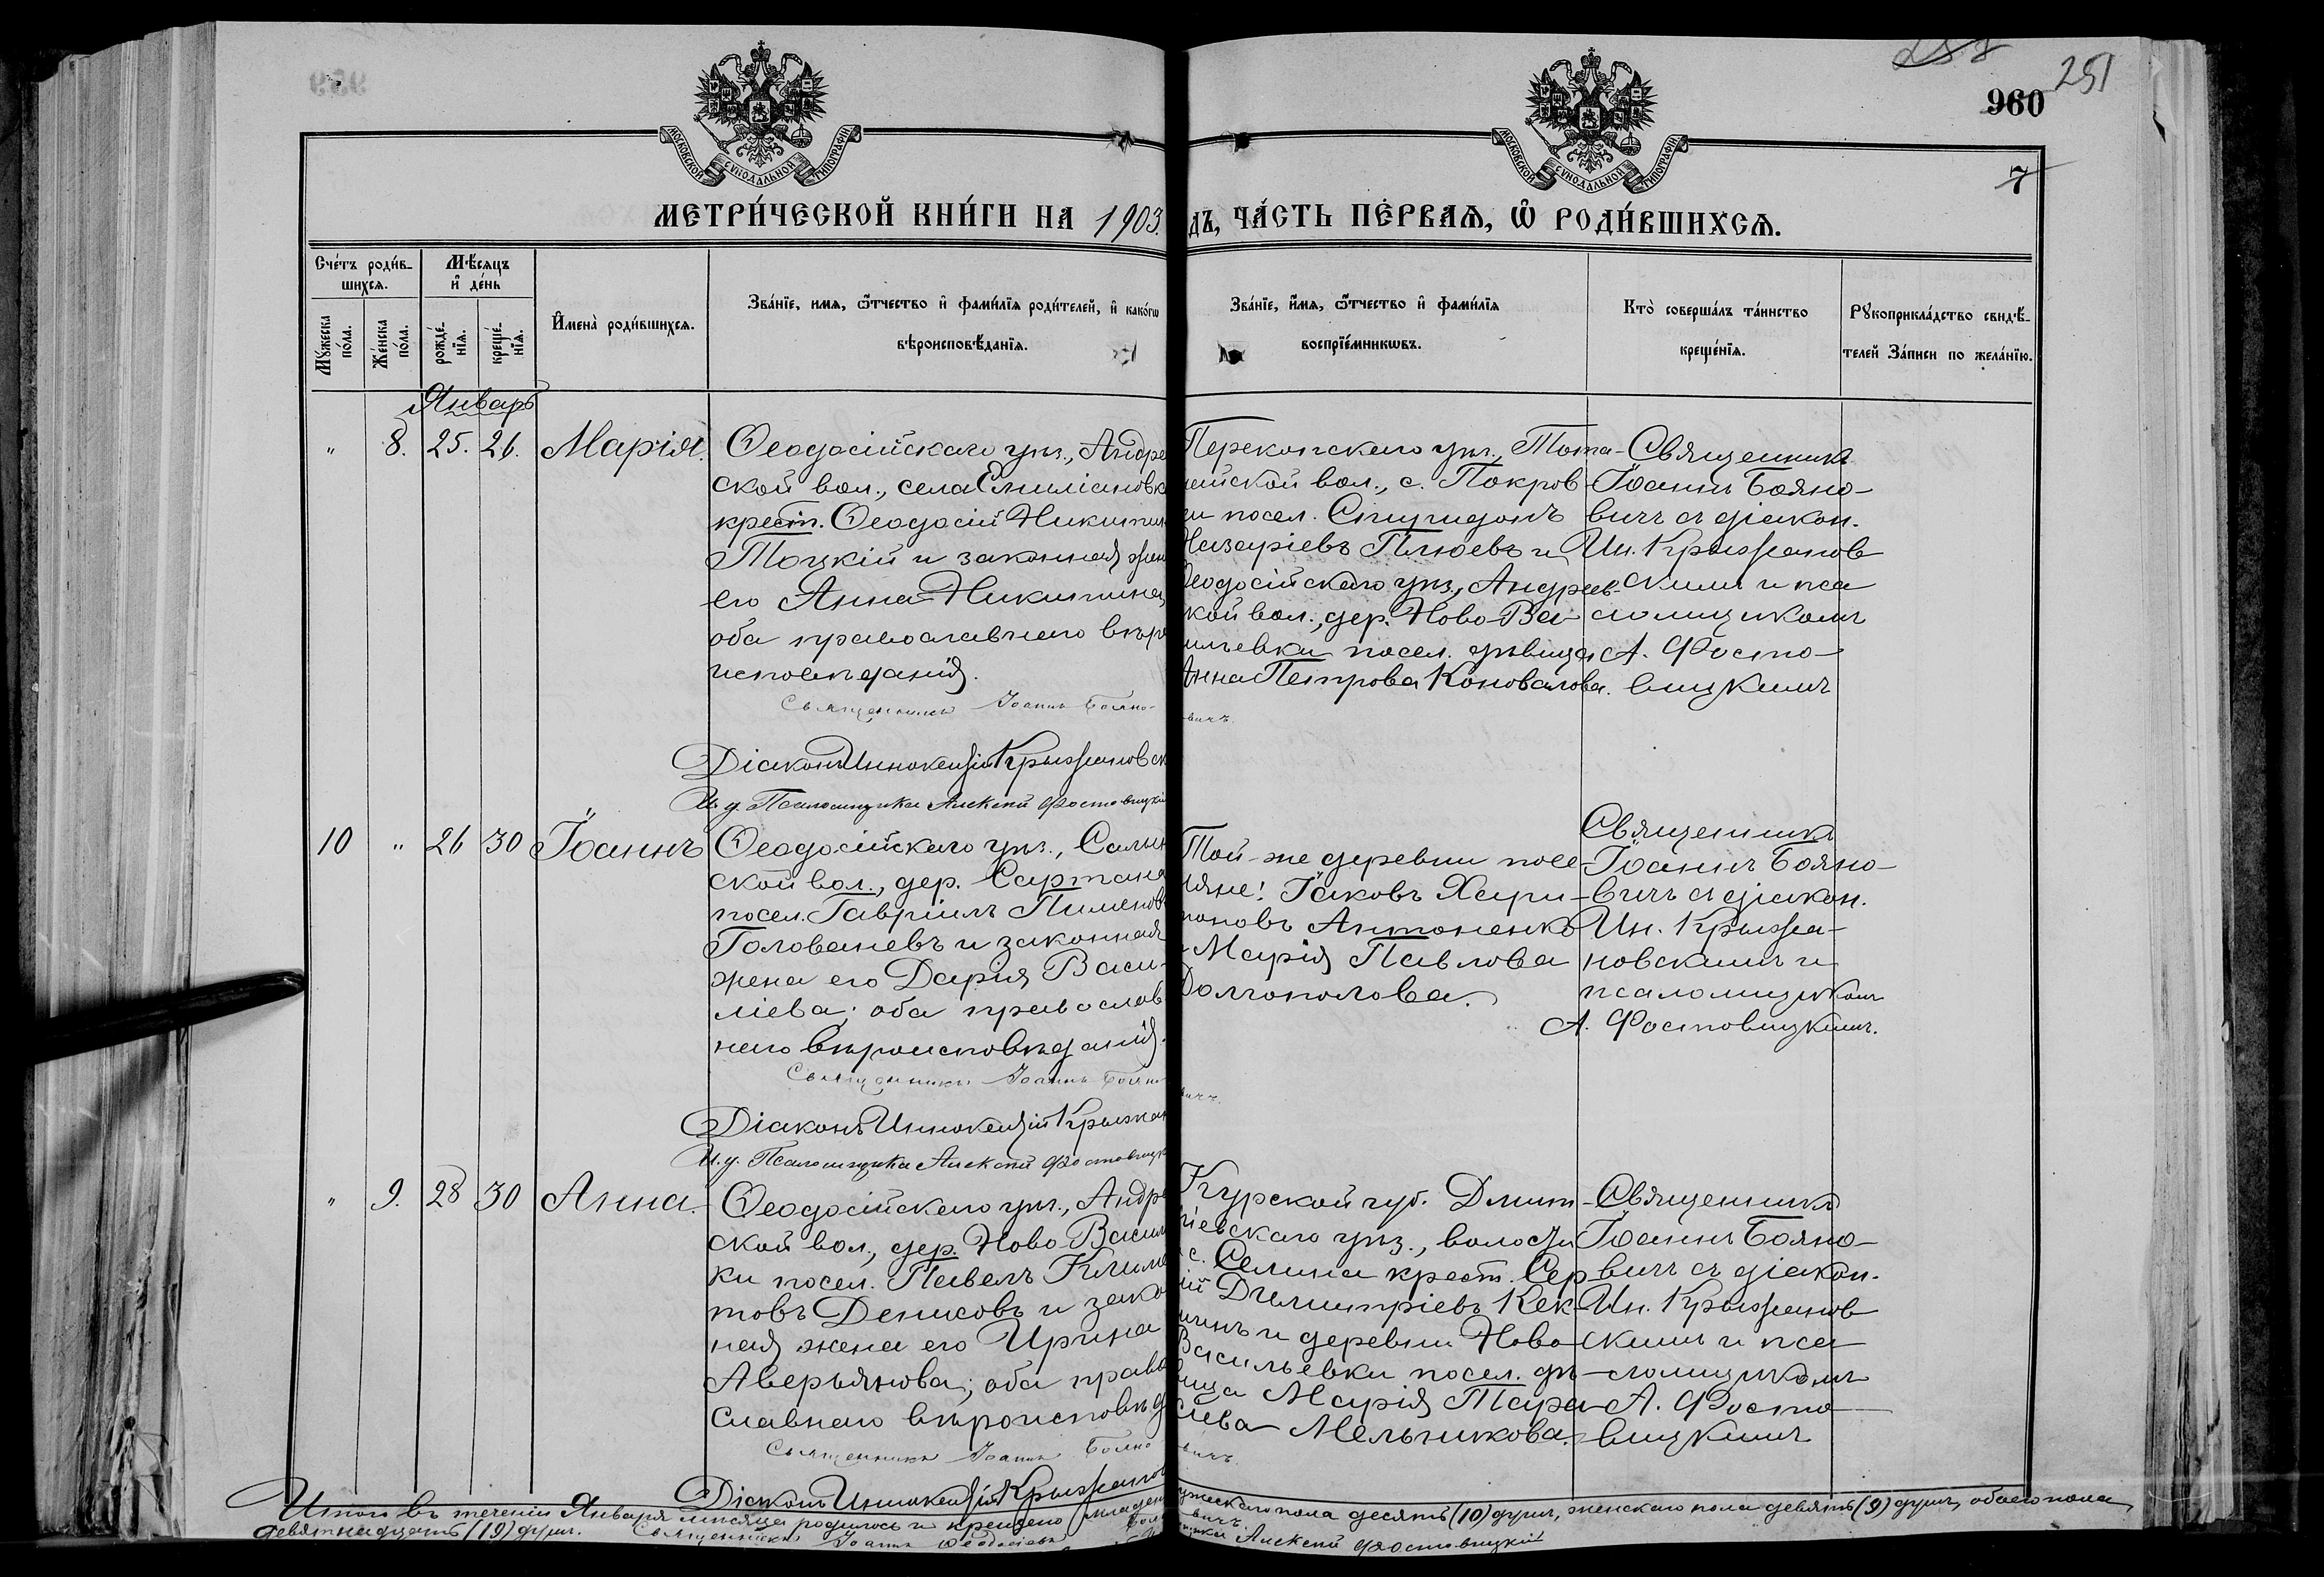 251
960
7
МОСКОВСКОЙ СѴНОДАЛЬНОЙ ТИПОГРАФІИ
МОСКОВСКОЙ СѴНОДАЛЬНОЙ ТИПОГРАФІИ
МЕТРИ́ЧЕСКОЙ КНИ́ГИ НА 1903.
дъ, ЧА́СТЬ ПЕ́РВАѦ, Ѡ҆ РОДИ́ВШИХСѦ.
Сче́тъ роди́в-
шихсѧ.
Мѣ́сяцъ
и҆ де́нь
Мꙋ́жеска
по́ла.
Же́нска
по́ла.
рожде́-
нїѧ.
креще́-
нїѧ.
И҆мена̀ роди́вшихсѧ.
Зва́нїе, имѧ, ѻ҆́тчество и҆ фами́лїѧ роди́телей, и҆ како́гѡ
вѣроисповѣ́данїѧ.
Зва́нїе, и҆́мѧ, ѻ҆́тчество и҆ фами́лїѧ
воспрїе́мникѡвъ.
Кто̀ соверша́лъ та́инство
креще́нїѧ.
Рꙋкоприкла́дство свидѣ́-
телей За́писи по жела́нїю.
Январь
" 8. 25. 26. Марія.
Ѳеодосійскаго уѣз., Андре
ской вол., села Емиліановк
крест. Ѳеодосій Никитин
Тоцкій и законная жен
его Анна Никитина,
оба православнаго вѣро
исповѣданія.
Священникъ Іоаннъ Бояно-
Діаконъ Иннокентій Крыжановск
И. д. Псаломщика Алексѣй Фостовицкій
Перекопскаго уѣз., Тота-
ейской вол., с. Покров-
ки посел. Спиридонъ
Назаріевъ Плюевъ и
Ѳеодосійскаго уѣз., Андреев-
кой вол., дер. Ново-Ва-
ильевки посел. дѣвица
Анна Петрова Коновалова.
вичъ.
Священникъ
Іоаннъ Бояно-
вичъ съ діакон.
Ин. Крыжанов
скимъ и пса
ломщикомъ
А. Фосто-
вицкимъ
10 " 26 30 Іоаннъ
Ѳеодосійскаго уѣз., Салын
ской вол., дер. Сартана
посел. Гавріилъ Пименовъ
Голованевъ и законная
жена его Дарія Васи-
ліева; оба православ
наго вѣроисповѣданія.
Священникъ Іоаннъ Бояно
Діаконъ Иннокентій Крыжан
И. д. Псаломщика Алексѣй Фостовицк
Той-же деревни посе-
ляне: Іаковъ Хари-
тоновъ Антоненко
Марія Павлова
Долгополова.
вичъ.
Священникъ
Іоаннъ Бояно-
вичъ съ діакон.
Ин. Крыжа-
новскимъ и
псаломщикомъ
А. Фостовицкимъ.
" 9. 28 30 Анна.
Ѳеодосійскаго уѣз., Андре
ской вол., дер. Ново-Васил
ки посел. Павелъ Климе
товъ Денисовъ и зако
ная жена его Ирина
Аверьянова; оба право
славнаго вѣроисповѣд
Священникъ Іоаннъ Бояно
Діаконъ Иннокентій Крыжанов
Курской губ. Дмит-
ріевскаго уѣз., волости
с. Селина крест. Сер
ій Димитріевъ Кек-
инъ и деревни Ново
Васильевки посел. дѣ-
вица Марія Тара-
сіева Мельникова.
вичъ.
Священникъ
Іоаннъ Бояно-
вичъ съ діакон.
Ин. Крыжанов
скимъ и пса
ломщикомъ
А. Фосто
вицкимъ
Итого въ теченіи Января мѣсяца родилось и крещено младен
ужескаго пола десять (10) душъ, женскаго пола девять (9) душъ, обоего пола
девятнадцать (19) душъ. Священникъ Іоаннъ Ѳеодосіевъ Боян
вичъ.
Алексѣй Фостовицкій